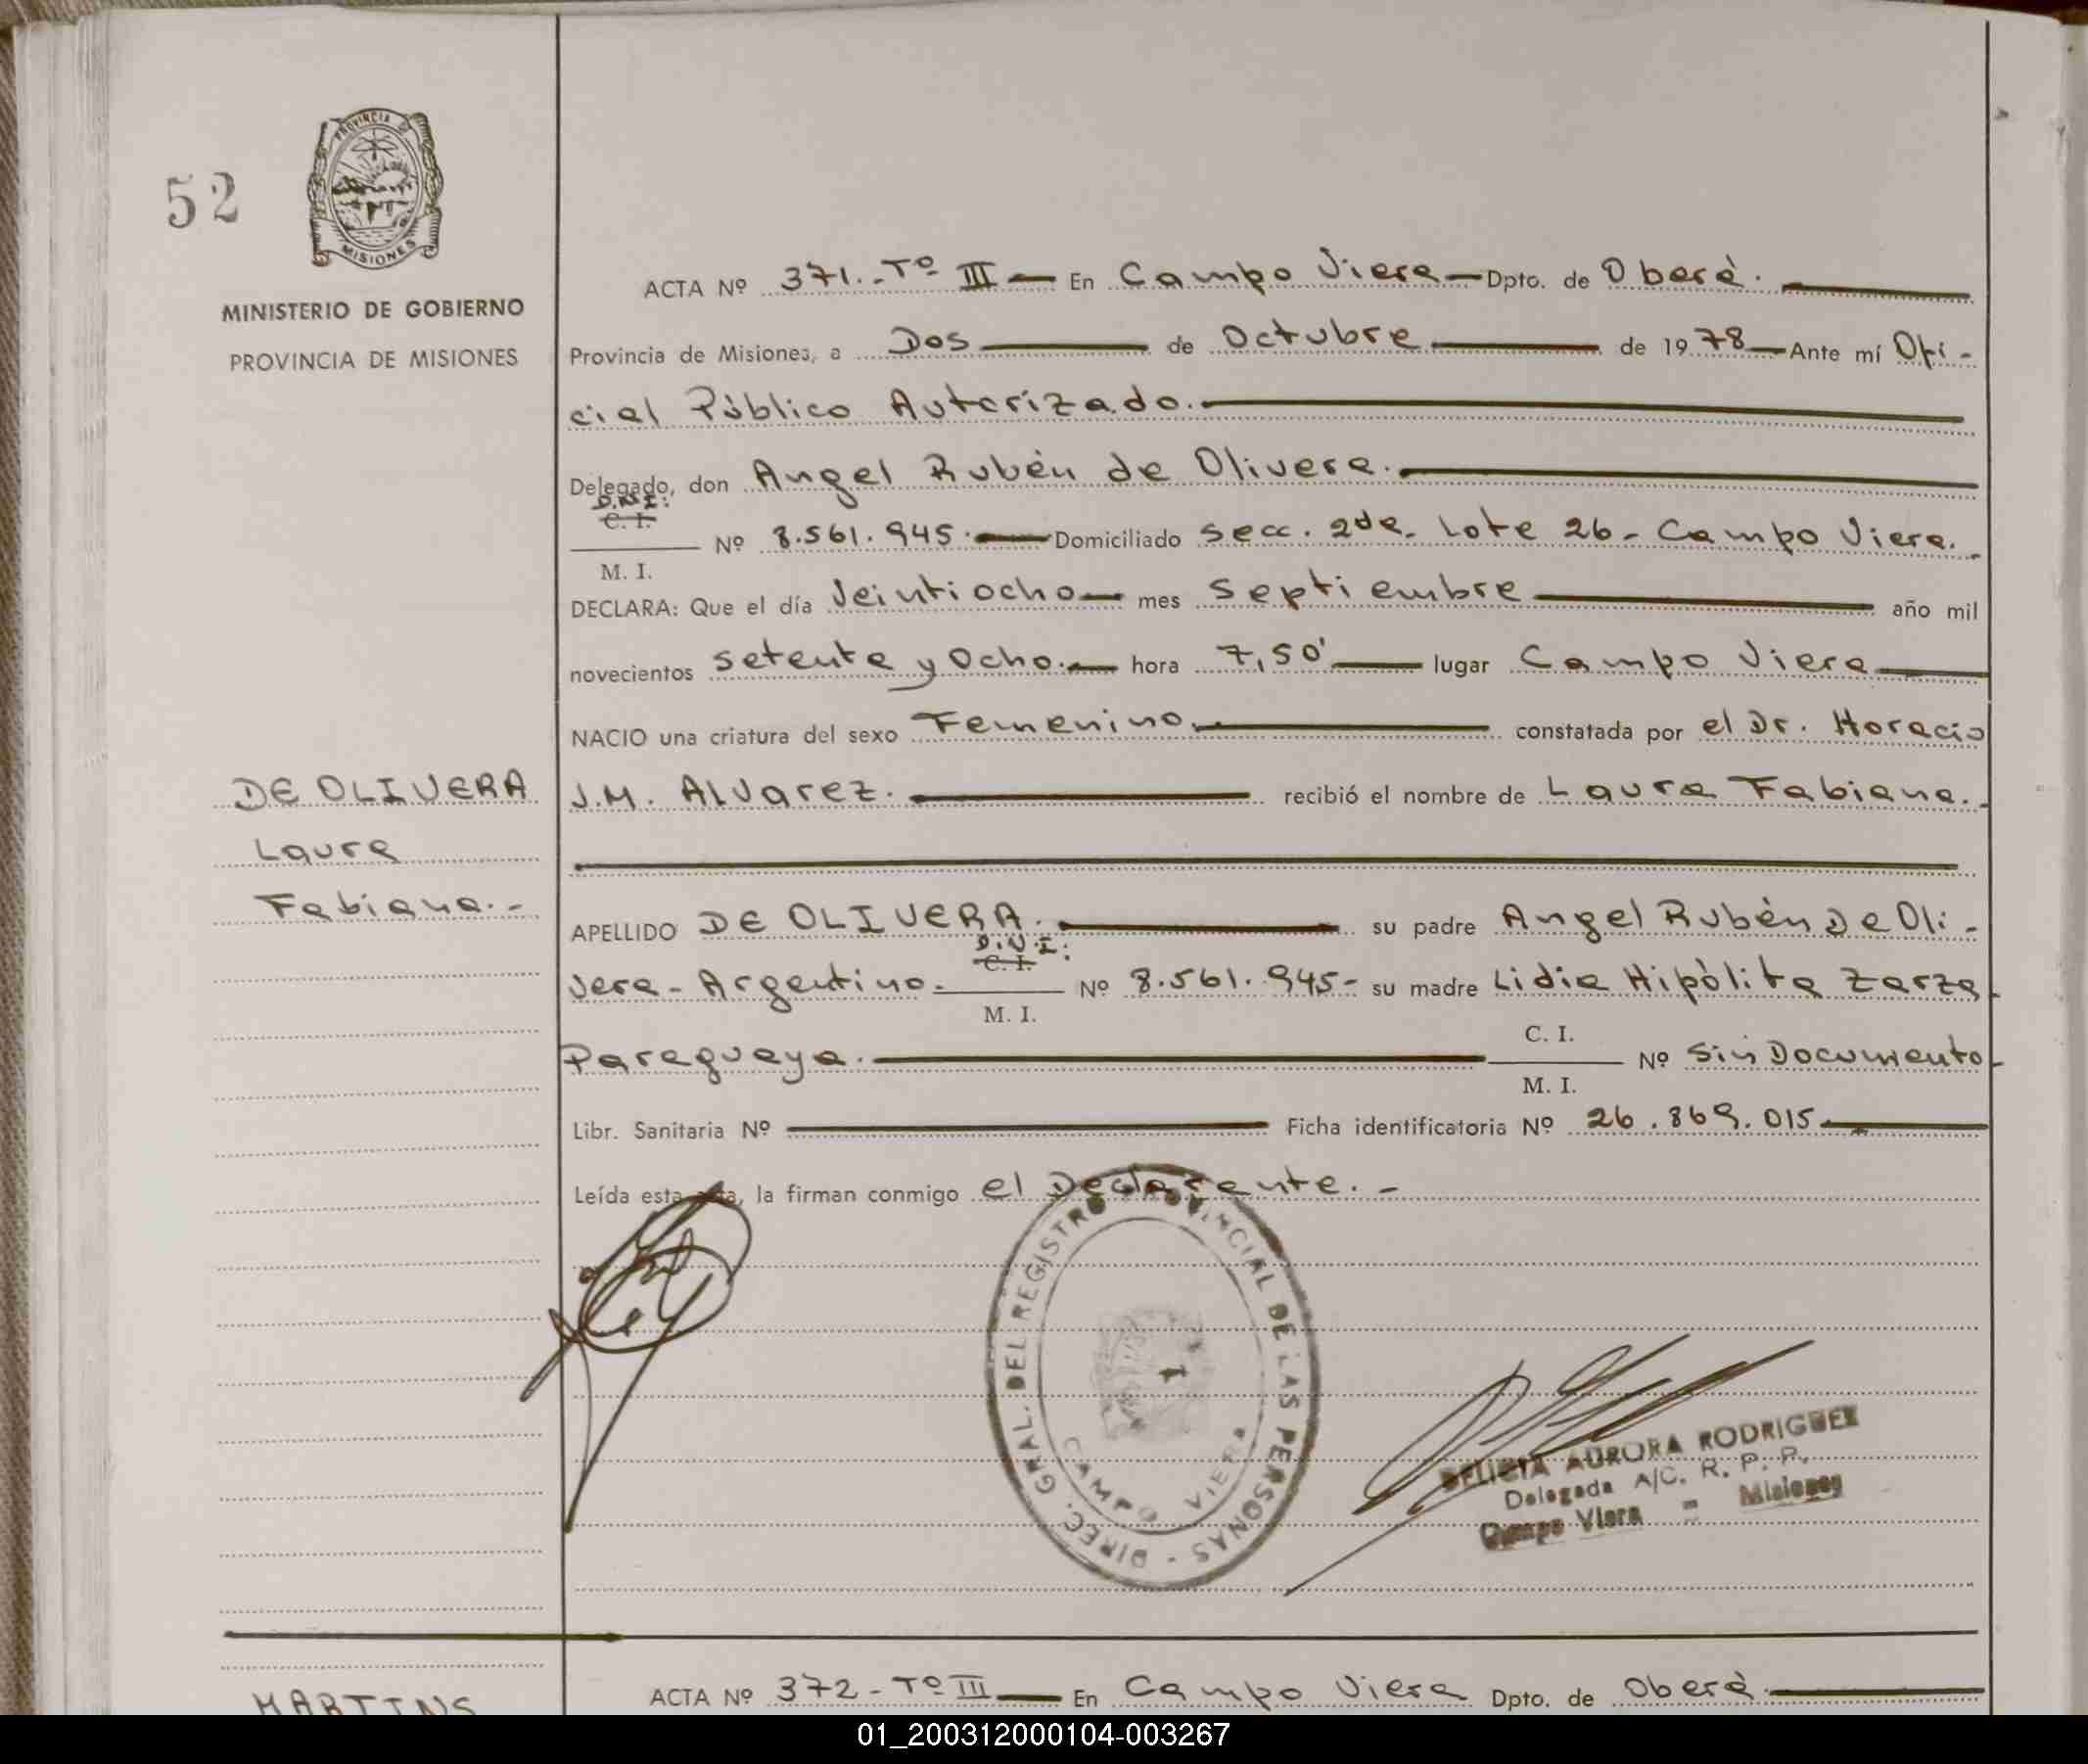 52
PROVINCIA DE
MISIONES
MINISTERIO DE GOBIERNO
PROVINCIA DE MISIONES
ACTA Nº 371.-Tº III — En Campo Viera — Dpto. de Oberá.
Provincia de Misiones, a Dos de Octubre de 1978 — Ante mí Ofi-
cial Público Autorizado.
Delegado, don Angel Rubén de Olivera.
D.N.I:
C. I.
Nº 8.561.945. Domiciliado Secc. 2da. Lote 26- Campo Viera.-
M. I.
DECLARA: Que el día Veintiocho mes Septiembre año mil
novecientos setenta y Ocho. hora 7,50' lugar Campo Viera
NACIO una criatura del sexo Femenino. constatada por el Dr. Horacio
J.M. Alvarez. recibió el nombre de Laura Fabiana.-
DE OLIVERA
Laura
Fabiana.-
APELLIDO DE OLIVERA. su padre Angel Rubén De Oli-
D.N.I:
C. I.
vera- Argentino. Nº 8.561.945- su madre Lidia Hipólita Zarza-
M. I.
C. I.
Paraguaya. Nº Sin Documento-
M. I.
Libr. Sanitaria Nº — Ficha identificatoria Nº 26.869.015.
Leída esta acta, la firman conmigo el Declarante.-
DIREC. GRAL. DEL REGISTRO PROVINCIAL DE LAS PERSONAS -
1
CAMPO VIERA
DELICIA AURORA RODRIGUEZ
Delegada A/C. R. P. P.
Campo Viera = Misiones
MARTINS
ACTA Nº 372-Tº III — En Campo Viera Dpto. de Oberá
01_200312000104-003267